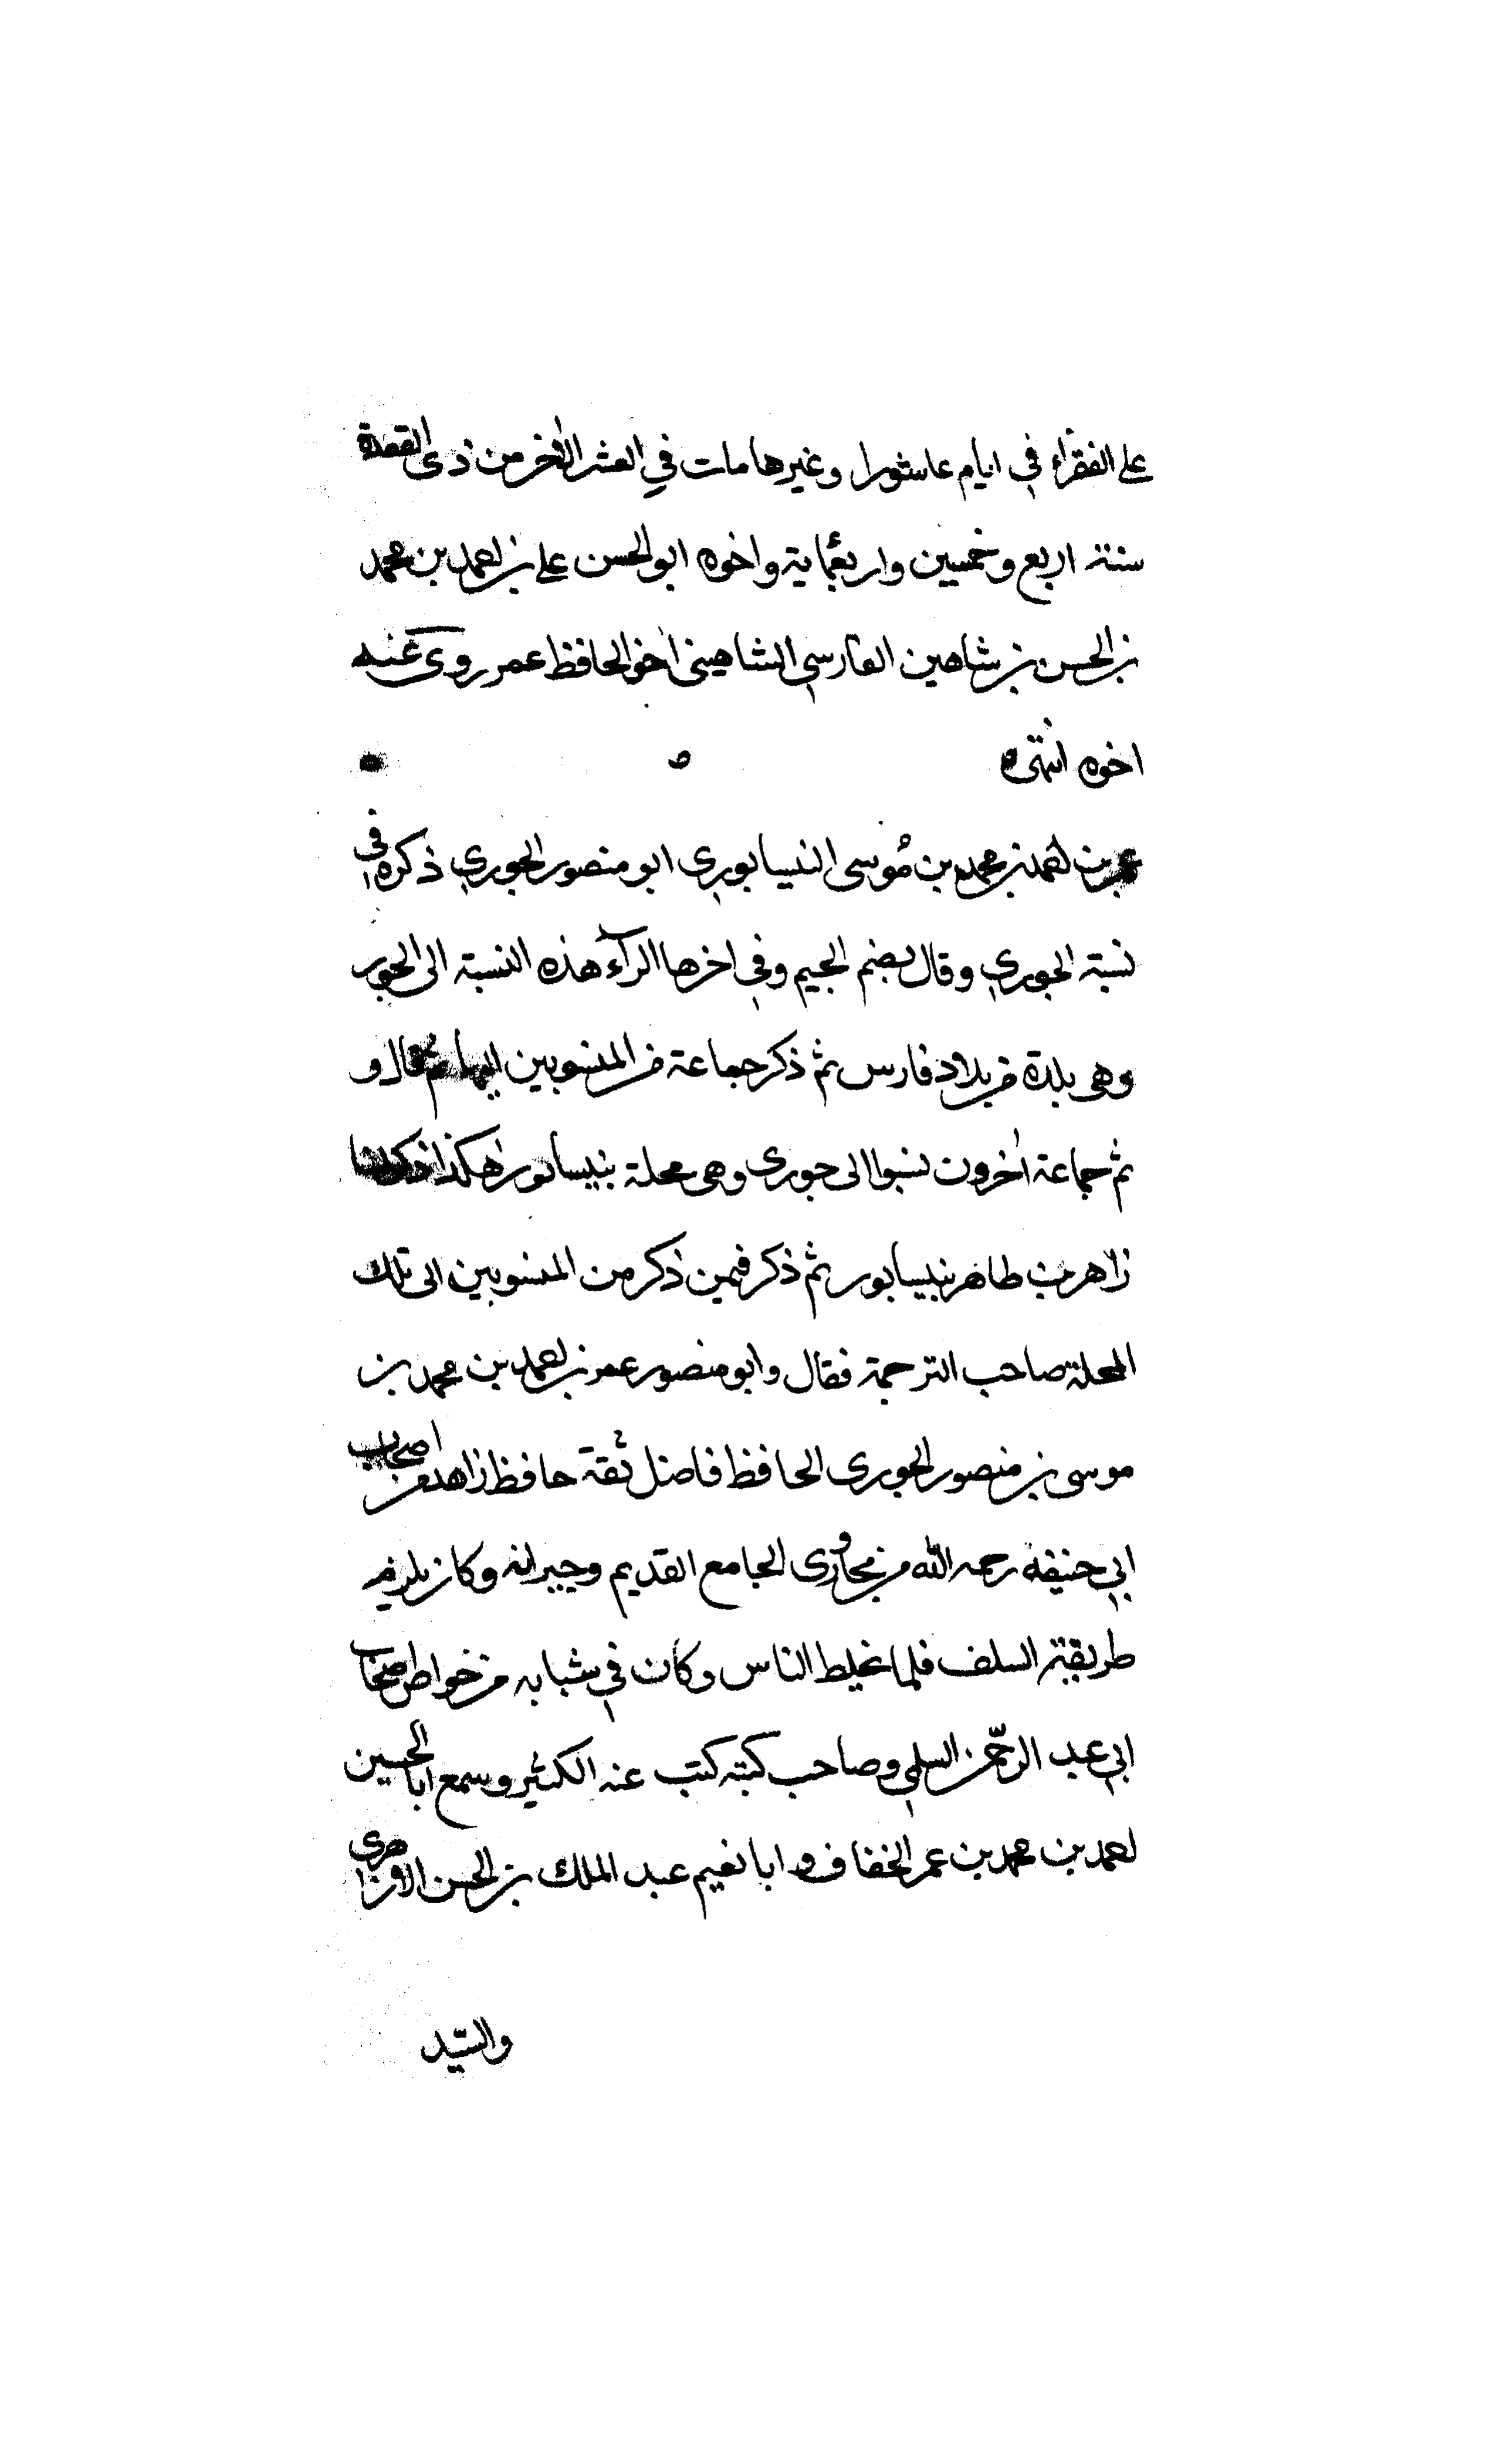 على الفقراء في ايام عاشورا وغيرها مات في العشر الاخر من ذى القعدة
سنة اربع وخمسين واربعماية واخوه ابو الحسن على بن احمد بن محمد
بن الحسن بن شاهين الفارسي الشاهينى اخو الحافظ عمر روى عنه
اخوه انتهى ه
عمر بن احمد بن محمد بن موسى النيسابورى ابو منصور الجوري ذكره في
نسبة الجوري وقال بضم الجيم وفي اخرها الرآء هذه النسبة الى الجور
وهى بلدة من بلاد فارس ثم ذكر جماعة من المنسوبين اليها ثم قال و
ثم جماعة اخرون نسبوا الى جورى وهى محلة بنيسابور هكذا ذكر لنا
زاهر بن طاهر بنيسابور ثم ذكر فيمن ذكر من المنسوبين الى تلك
المحلة صاحب الترجمة فقال وابو منصور عمر بن احمد بن محمد بن
موسى بن منصور الجورى الحافظ فاضل ثقة حافظ زاهد من اصحاب
ابي حنيفه رحمه الله من مجاورى الجامع القديم وجيرانه وكان يلزم
طريقة السلف فلما غيلط الناس وكان في شبابه من خواص اصحاب
ابي عبد الرحمن السلمي وصاحب كتبه كتب عنه الكثير وسمع ابا الحسين
احمد بن محمد بن عمر الخفاف و ابا نعيم عبد الملك بن الحسن الازهرى
والسّيد